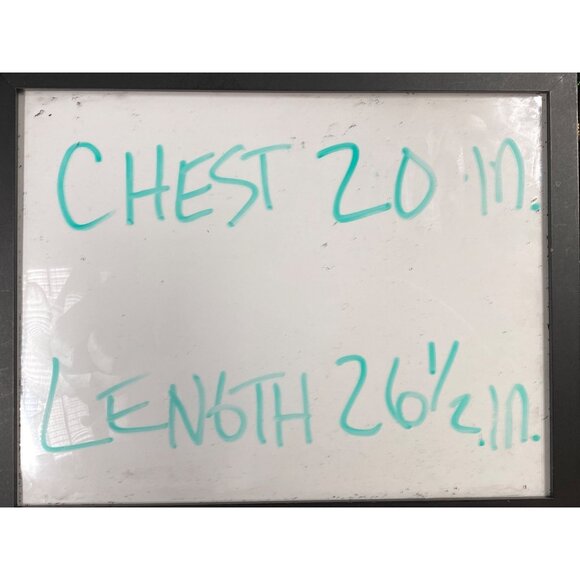 CHEST 20 in.
LENGTH 26 1/2 in.